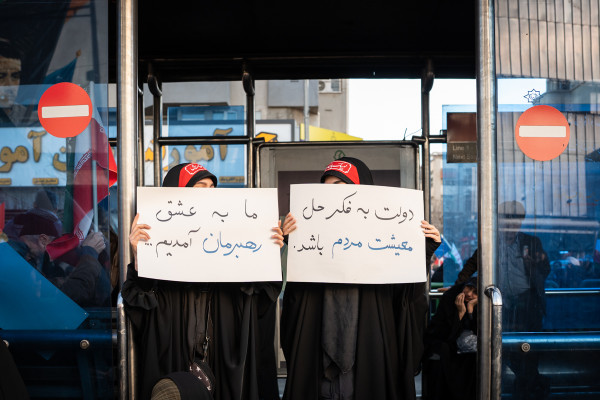 ما به عشق
رهبرمان آمدیم..
دولت به فکر حل
معیشت مردم باشد.